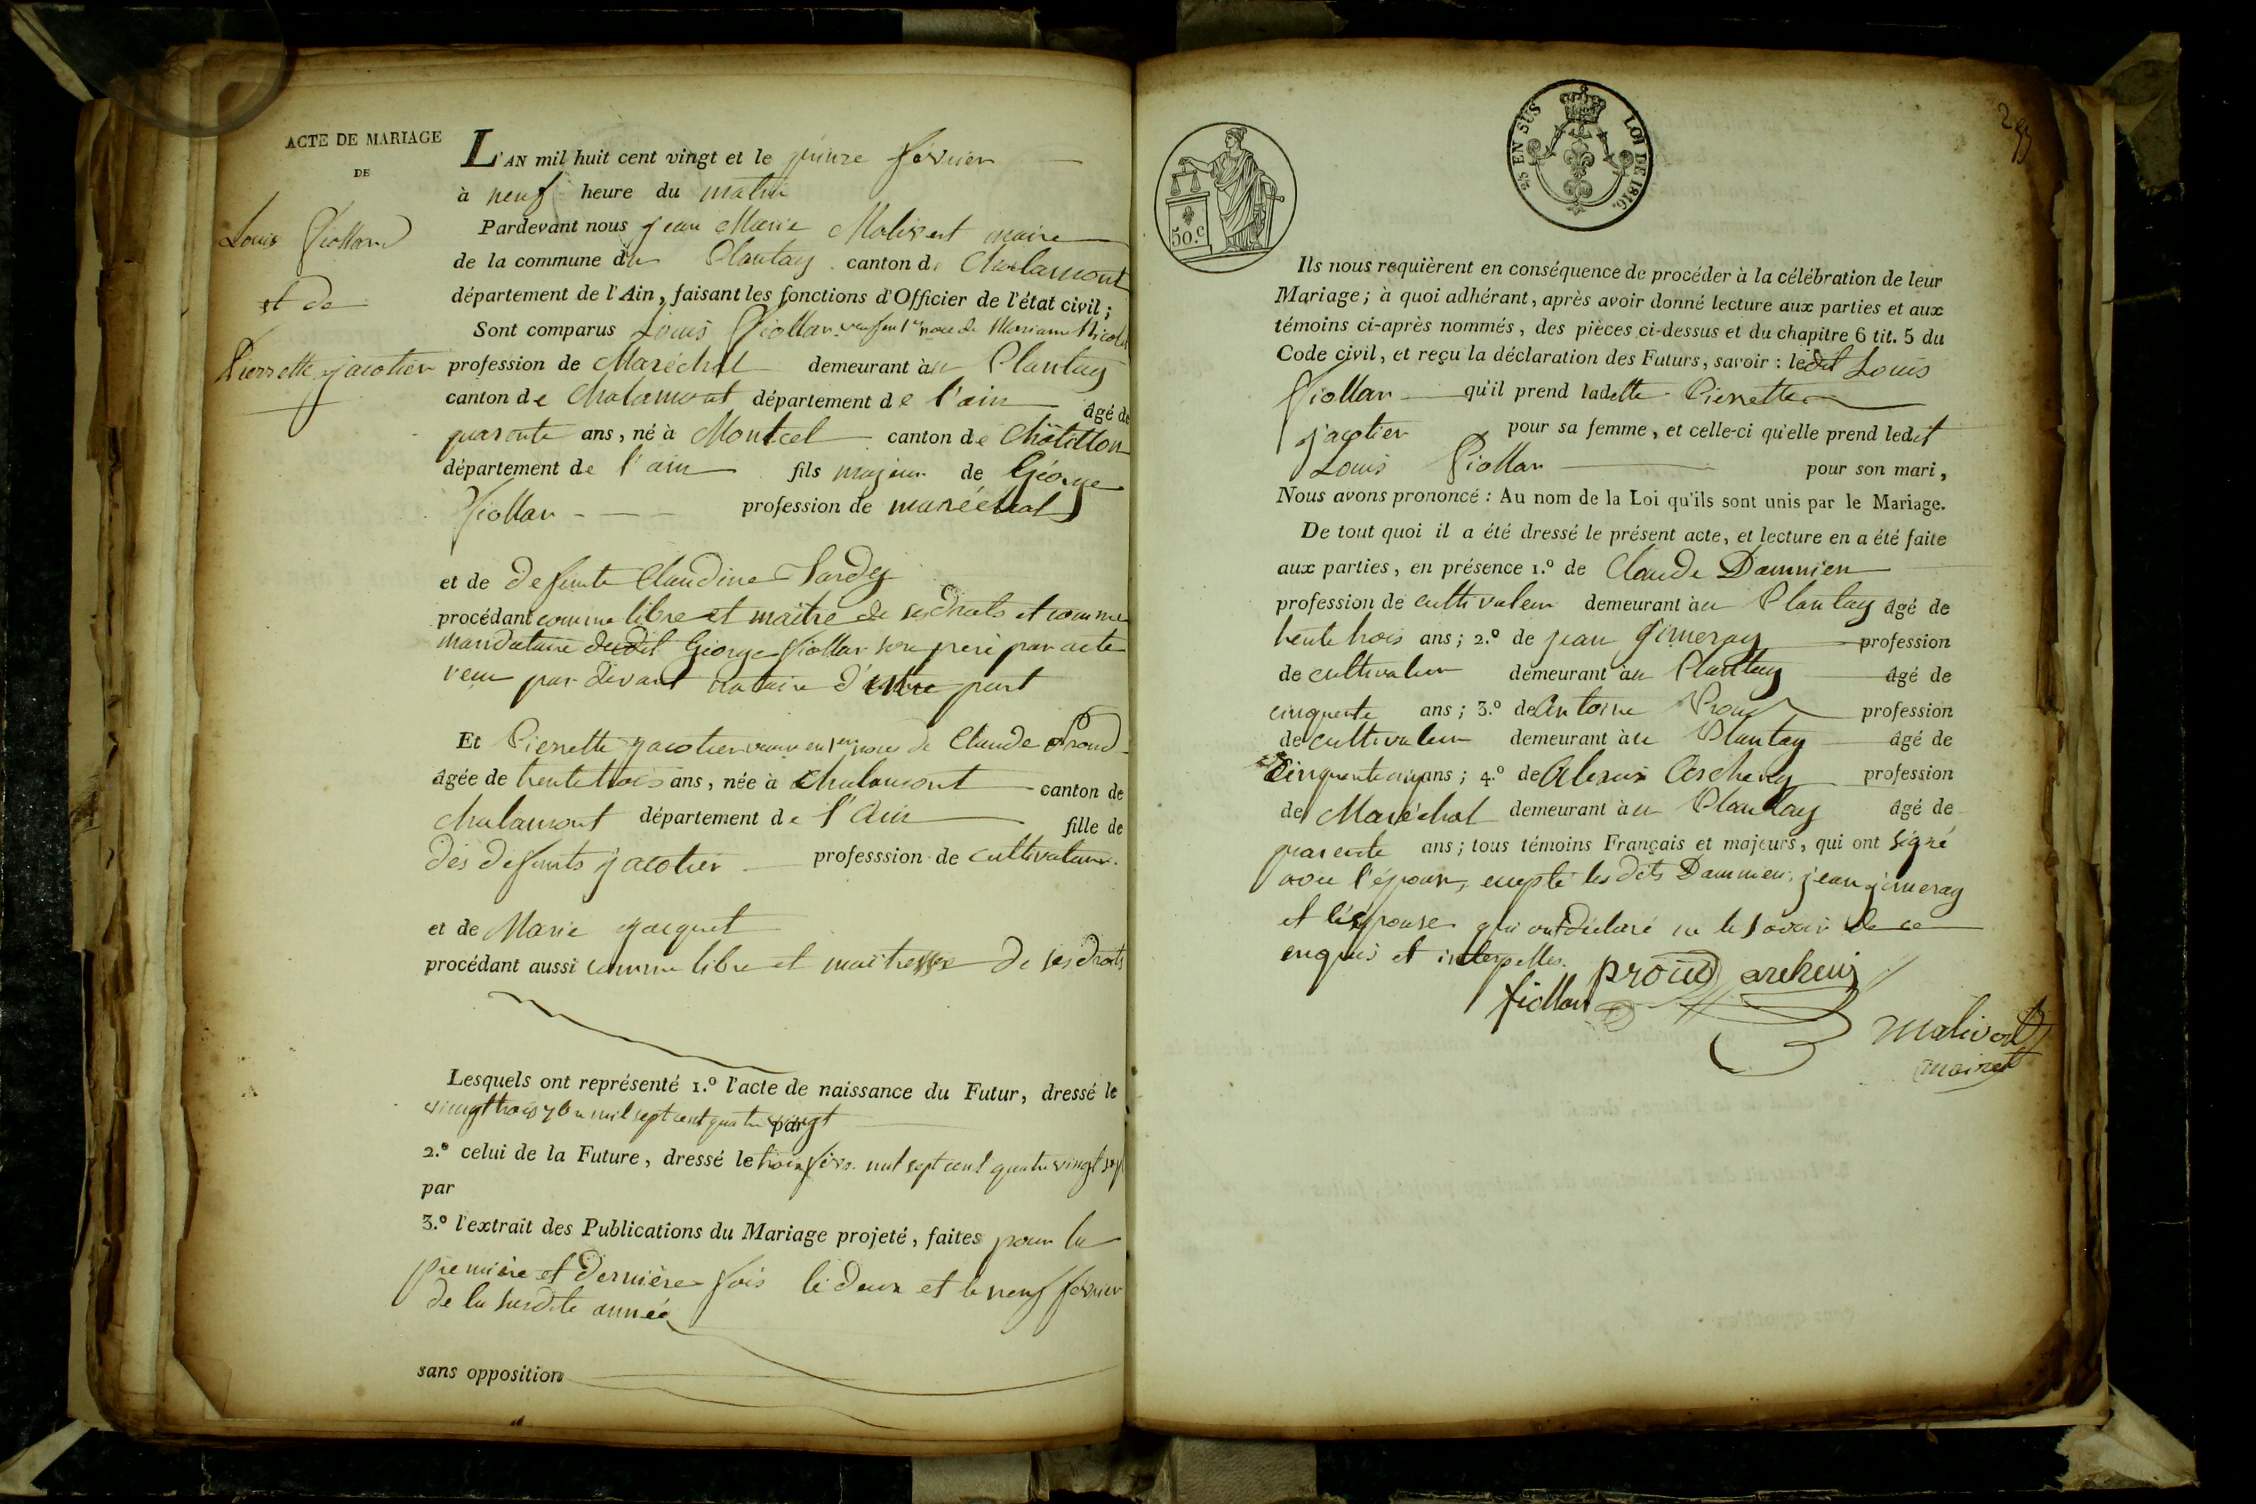 ACTE DE MARIAGE
DE
Louis Fiollan
et de
Pierrette jacotier
L'AN mil huit cent vingt et le quinze février
à neuf heure du matin
Pardevant nous jean Marie Malivert maire
de la commune du Plantay canton de Chalamont
département de l'Ain, faisant les fonctions d'Officier de l'état civil;
Sont comparus Louis Fiollan veuf en 1eres noce de Mariane Nicolet
profession de Maréchal demeurant au Plantay
canton de Chalamont département de l'ain âgé de
quarente ans, né à Montcel canton de Châtillon
département de l'ain fils majeur de George
Fiollan profession de maréchal
et de defunte Claudine Sardy
procédant comme libre et maitre de ses droits et comme
mandataire dudit George Fiollan son pere par acte
recu par divant notaire d'autre part
Et Pierrette jacotier veuve en 1eres noces de Claude Proud
âgée de trente trois ans, née à Chalamont canton de
chalamont département de l'Ain fille de
des defunts jacotier professsion de cultivateur.
et de Marie jacquet
procédant aussi comme libre et maitresse de ses droits
Lesquels ont représenté 1.º l'acte de naissance du Futur, dressé le
vingt trois 7bre mil sept cent quatre vingt par
2.º celui de la Future, dressé le trois févr. mil sept cent quatre vingt sept
par
3.º l'extrait des Publications du Mariage projeté, faites pour la
premiére et derniére fois le deux et le neuf février
de la susdite année
sans opposition
293
50.c
25 EN SUS LOI DE 1816.
Ils nous requièrent en conséquence de procéder à la célébration de leur
Mariage; à quoi adhérant, après avoir donné lecture aux parties et aux
témoins ci-après nommés, des pièces ci-dessus et du chapitre 6 tit. 5 du
Code civil, et reçu la déclaration des Futurs, savoir: ledit Louis
Fiollan qu'il prend ladette Pierrette
jacotier pour sa femme, et celle-ci qu'elle prend ledit
Louis Fiollan pour son mari,
Nous avons prononcé: Au nom de la Loi qu'ils sont unis par le Mariage.
De tout quoi il a été dressé le présent acte, et lecture en a été faite
aux parties, en présence 1.º de Claude Dammien
profession de cultivateur demeurant au Plantay âgé de
trente trois ans; 2.º de jean jimeray profession
de cultivateur demeurant au Plantay âgé de
cinquente ans; 3.º de Antoine Proud profession
de cultivateur demeurant au Plantay âgé de
cinquente cinq ans; 4.º de Alexis Archeny profession
de Maréchal demeurant au Plantay âgé de
quarente ans; tous témoins Français et majeurs, qui ont signé
avec l'époux, excepté les dits Dammien, jean jimeray
et l'épouse qui ont déclaré ne le savoir de ce
enquis et interpellés.
fiollan proud archeni
Malivert
maire